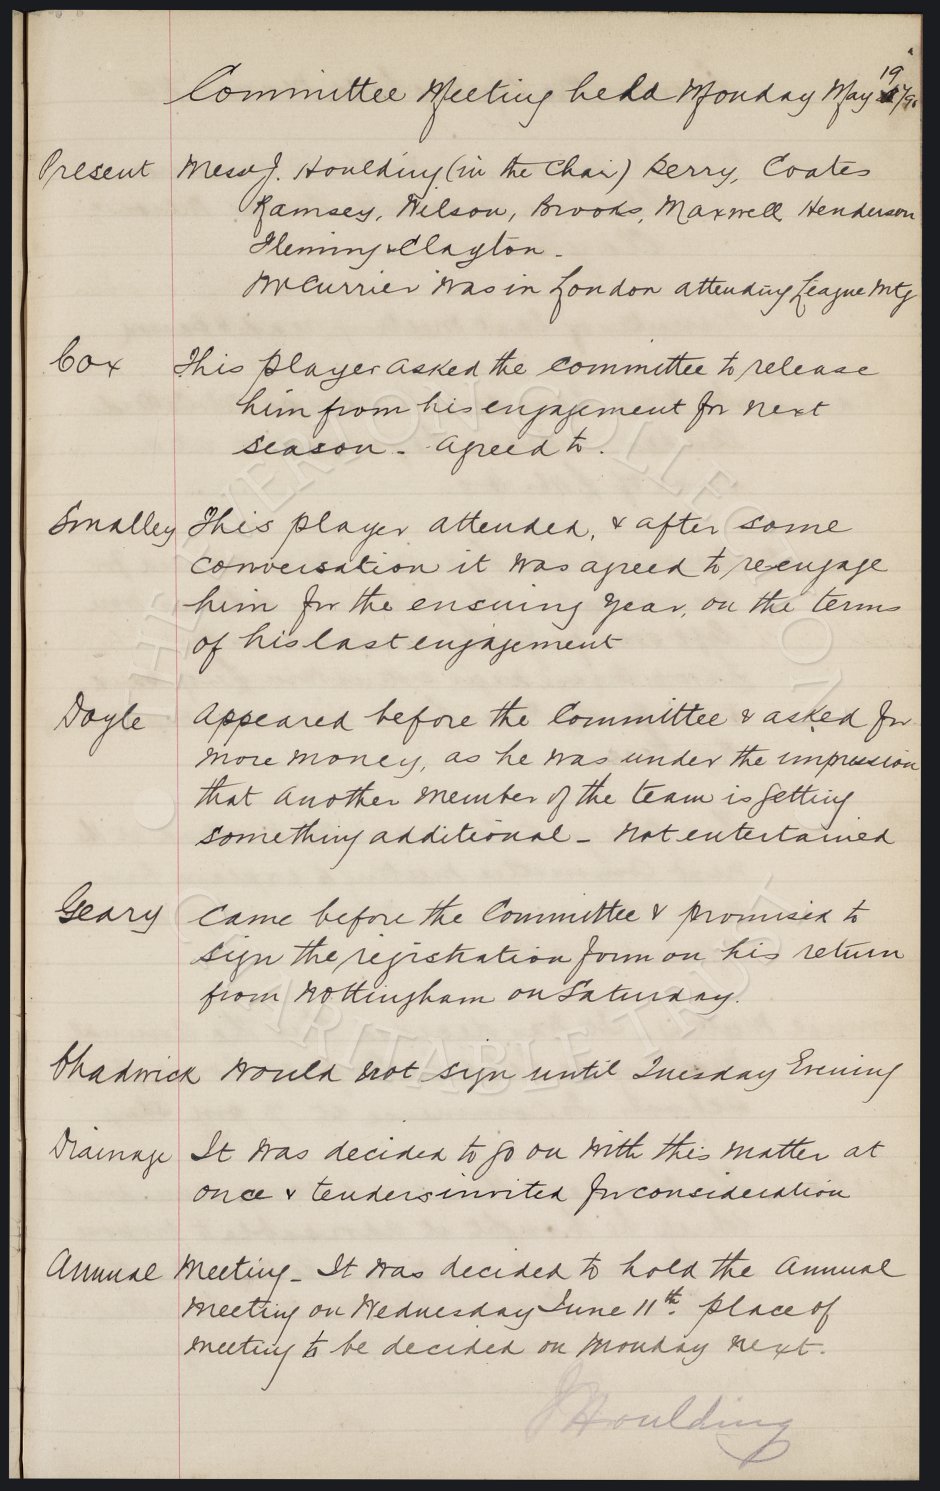 Committee Meeting held Monday May 19/90
Present Messrs J. Houlding (in the Chair) Berry, Coates
Ramsey, Wilson, Brooks, Maxwell Henderson
Fleming & Clayton.
Mr Currier was in London attending League Mtg
Cox This player asked the committee to release
him from his engagement for next
season - agreed to.
Smalley This player attended, & after some
conversation it was agreed to reengage
him for the ensuing year, on the terms
of his last engagement
Doyle Appeared before the Committee & asked for
more money, as he was under the impression
that another member of the team is getting
something additional - not entertained
Geary Came before the Committee & promised to
sign the registration form on his return
from Nottingham on Saturday.
Chadwick would not sign until Tuesday Evening
Drainage It was decided to go on with this matter at
once & tenders invited for consideration
Annual Meeting - It was decided to hold the Annual
Meeting on Wednesday June 11th. place of
meeting to be decided on Monday next.
J Houlding
THE EVERTON COLLECTION
CHARITABLE TRUST